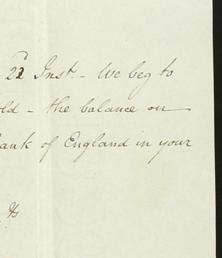 22 Inst. - We beg to
old - the balance on
Bank of England in your